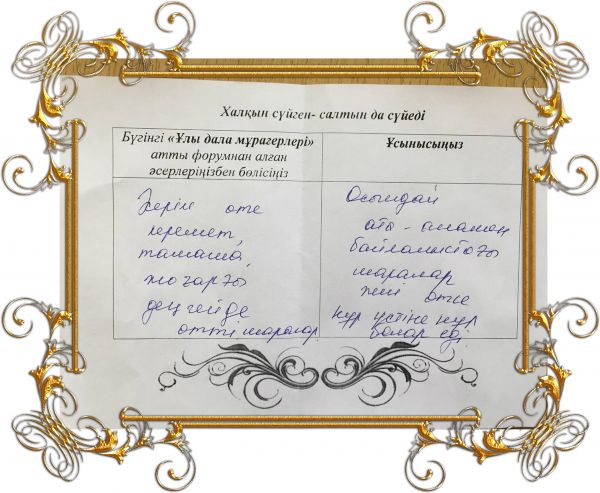 Халқын сүйген- салтын да сүйеді
Бүгінгі «Ұлы дала мұрагерлері»
атты форумнан алған
әсерлеріңізбен бөлісіңіз
Ұсынысыңыз
Әсерім өте
керемет,
тамаша,
жоғарғы
деңгейде
өтті шаралар
Осындай
ата - анамен
байланыстағы
шаралар
жиі өтсе
нұр үстіне нұр
болар еді.